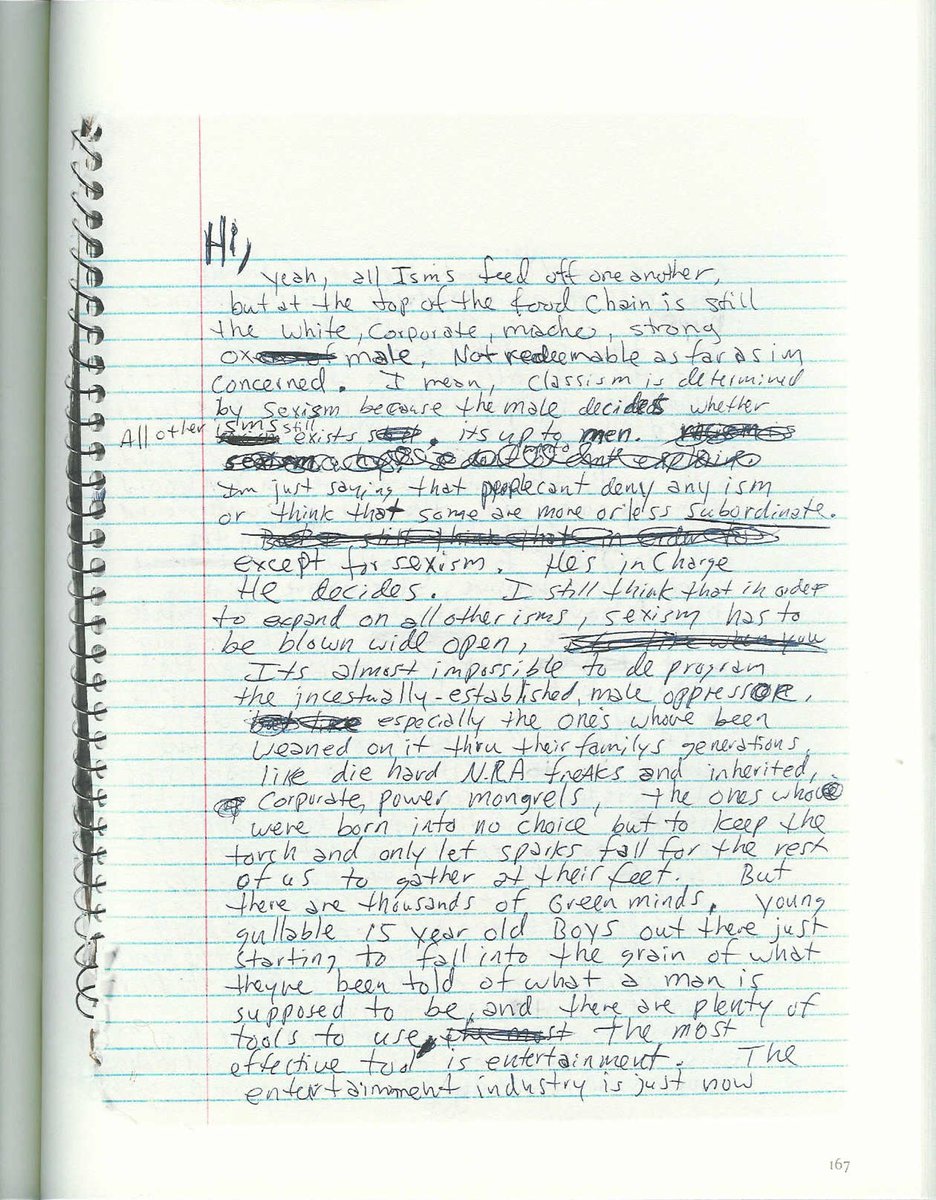 Hi,
Yeah, all Isms feed off one another,
but at the top of the food Chain is still
the white, corporate, macho, strong
ox male. Not redeemable as far as im
concerned. I mean, classism is determined
by sexism because the male decides whether
All other isms still exists. its up to men.
I'm just saying that people cant deny any ism
or think that some are more or less subordinate.
except for sexism. He's in charge
He decides. I still think that in order
to expand on all other isms, sexism has to
be blown wide open,
It's almost impossible to de program
the incestually-established, male oppressor.
especially the ones whove been
weaned on it thru their familys generations,
like die hard N.R.A freaks and inherited,
Corporate, power mongrels, the ones who
were born into no choice but to keep the
torch and only let sparks fall for the rest
of us to gather at their feet. But
there are thousands of Green minds. young
gullable 15 year old Boys out there just
starting to fall into the grain of what
theyve been told of what a man is
supposed to be, and there are plenty of
tools to use, the most
effective tool is entertainment. The
entertainment industry is just now
167